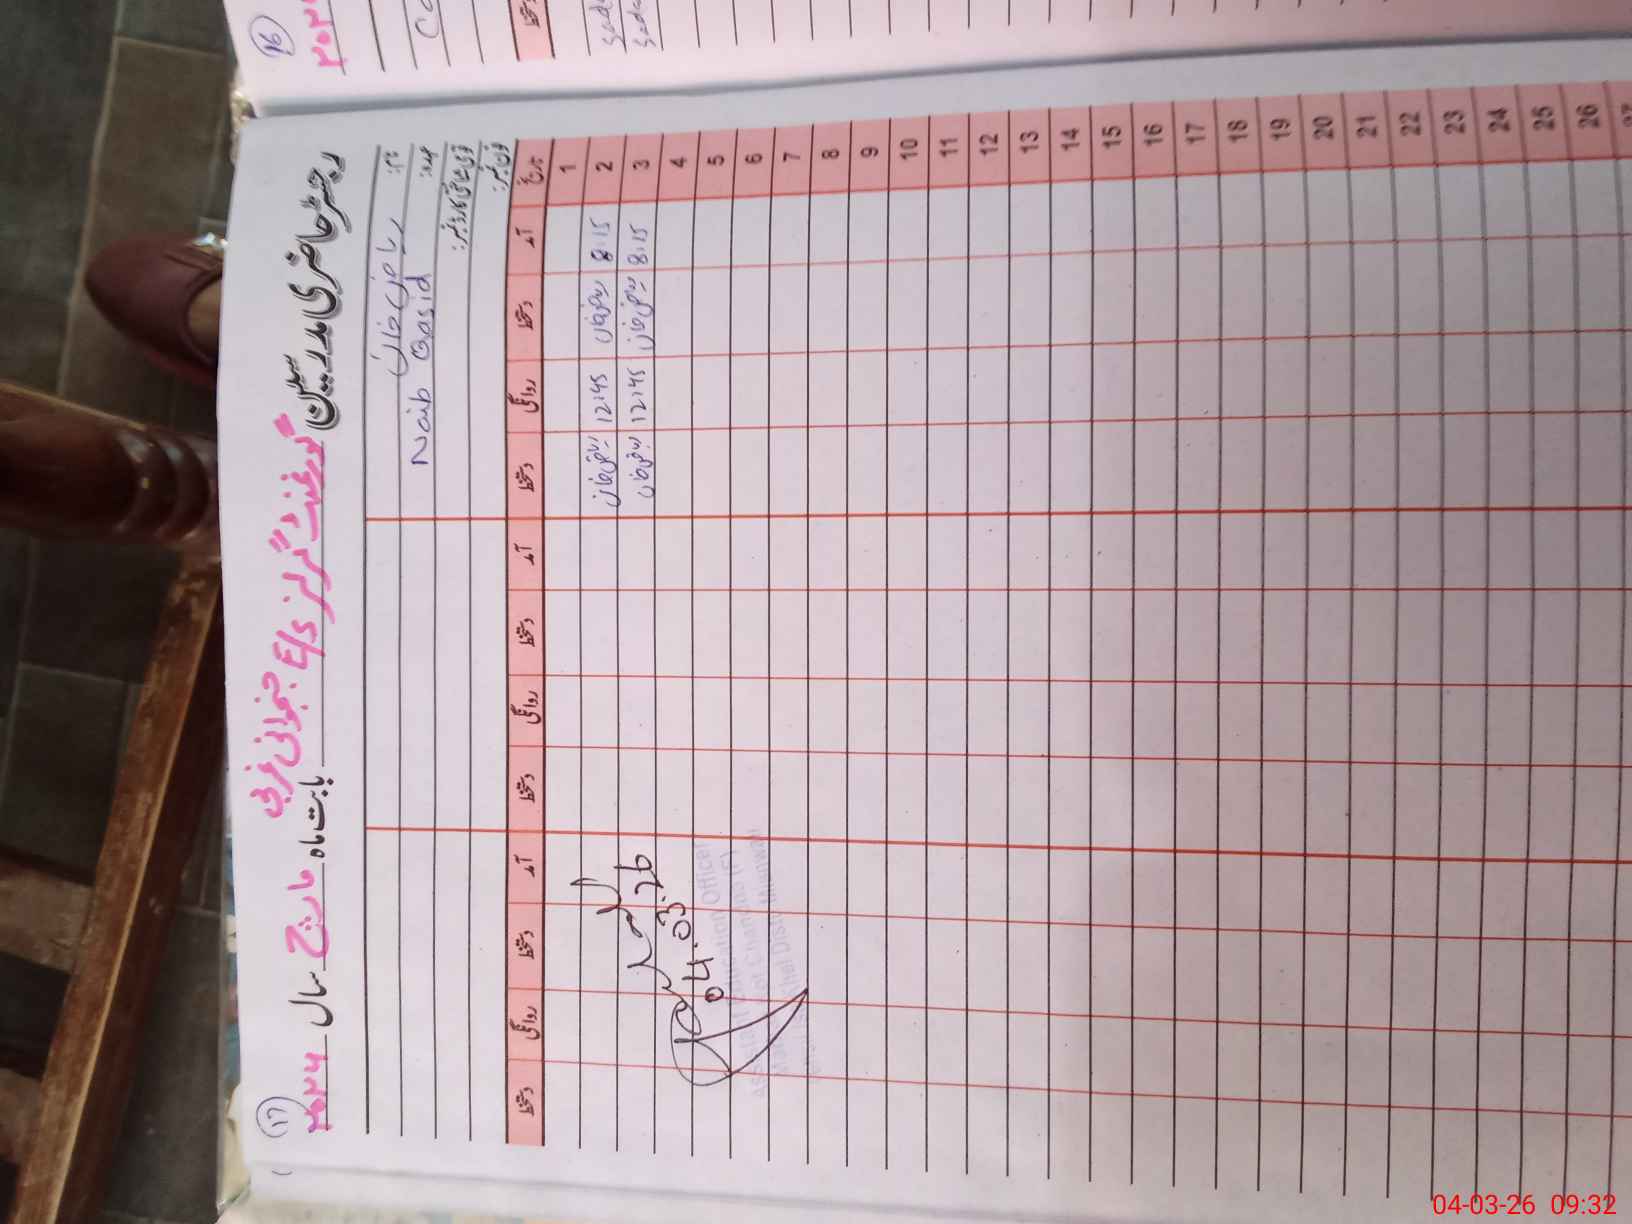 (17)
رجسٹر حاضری مدرسین گورنمنٹ گرلز E/S جنجوانی غربی
بابت ماہ مارچ سال ۲۰۲۶
نام: ریاض خان
عہدہ: Naib Qasid
قومی شناختی کارڈ نمبر:
فون نمبر:
تاریخ آمد دستخط روانگی دستخط آمد دستخط روانگی دستخط آمد دستخط روانگی دستخط
1
2 8:15 ریاض خان 12:45 ریاض خان
3 8:15 ریاض خان 12:45 ریاض خان
4
5
6
7
8
9
10
11
12
13
14
15
16
17
18
19
20
21
22
23
24
25
26
04.03.26
Education Officer
(16)
04-03-26 09:32